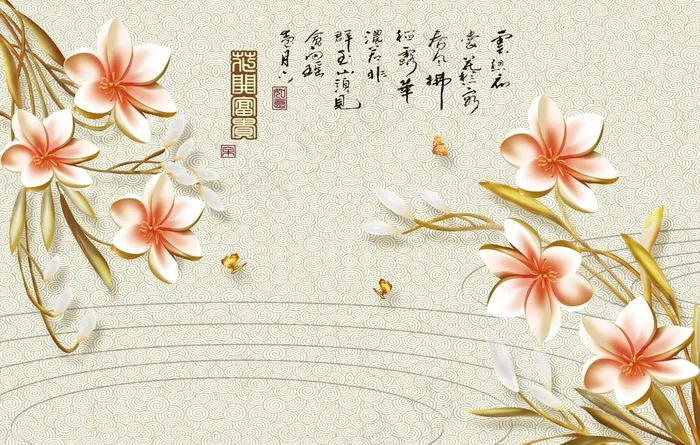 雲想衣
裳花想容
春風拂
檻露華
濃若非
群玉山頭見
會向瑤
臺月下
花開富貴